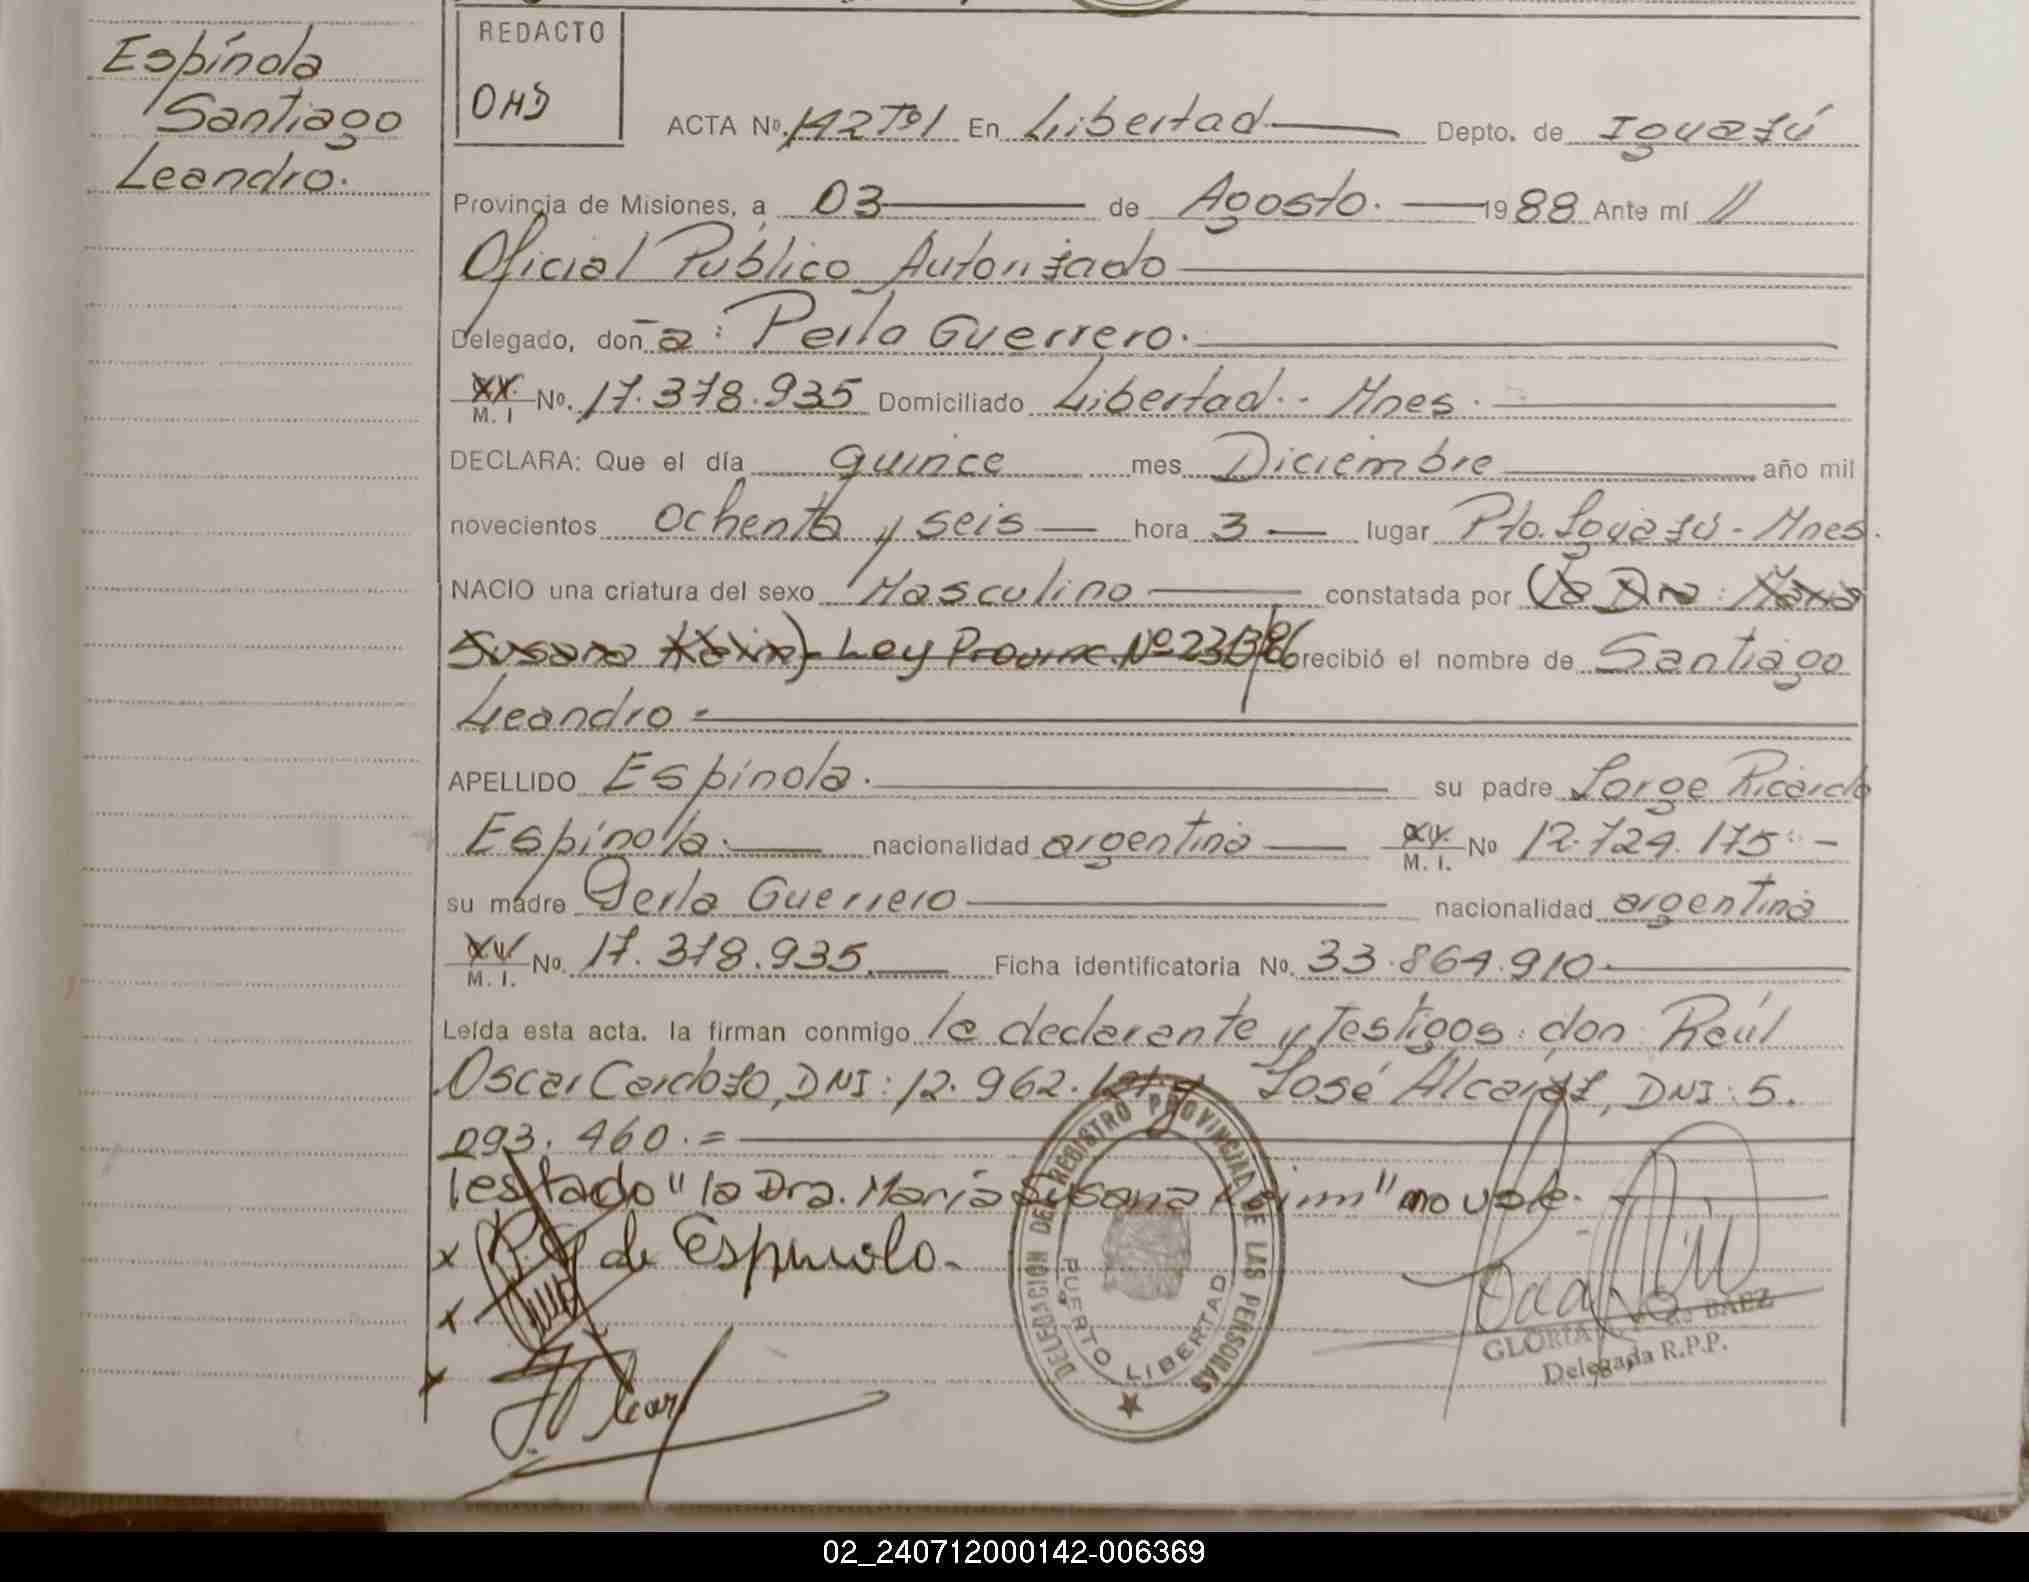 Espínola
Santiago
Leandro.
REDACTO
OHD
ACTA Nº. 142Tº1 En Libertad Depto. de Iguazú
Provincia de Misiones, a 03 de Agosto. 1988 Ante mí //
Oficial Público Autorizado
Delegado, don a: Perla Guerrero.
M. I Nº. 17.378.935 Domiciliado Libertad.- Mnes.
DECLARA: Que el día quince mes Diciembre año mil
novecientos ochenta y seis hora 3 lugar Pto. Iguazú - Mnes.
NACIO una criatura del sexo Masculino constatada por (la Dra. María
Susana) Ley Provinc. Nº recibió el nombre de Santiago
Leandro.
APELLIDO Espínola. su padre Jorge Ricardo
Espínola. nacionalidad argentina M. I. Nº 12.724.175.-
su madre Perla Guerrero nacionalidad argentina
M. I. Nº. 17.378.935. Ficha identificatoria Nº. 33.864.910.
Leída esta acta. la firman conmigo la declarante y testigos: don: Raúl
Oscar Cardozo, DNI: 12.962. y José Alcaraz, DNI: 5.
093.460.=
Testado "la Dra. María Susana" no vale.
x P.G. de Espínola.-
x
x
DELEGACION DEL REGISTRO PROVINCIAL DE LAS PERSONAS
PUERTO LIBERTAD
GLORIA BAEZ
Delegada R.P.P.
02_240712000142-006369